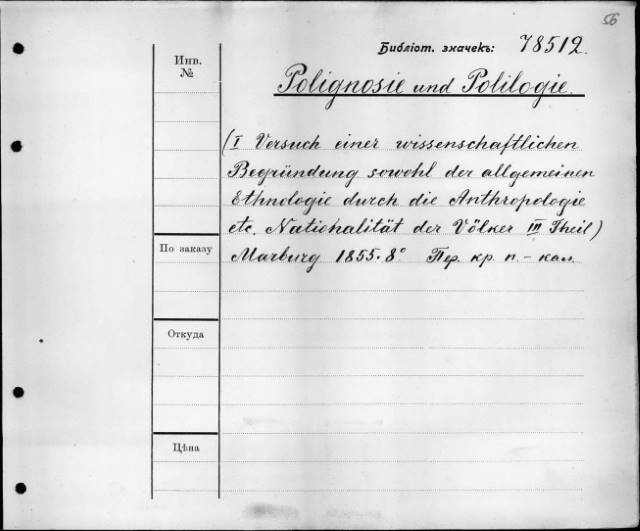 56
Библіот. значекъ: 78512.
Инв.
№
Polignosie und Polilogie.
(I Versuch einer wissenschaftlichen
Begründung sowohl der allgemeinen
Ethnologie durch die Anthropologie
etc. Nationalität der Völker III Theil)
По заказу
Marburg 1855. 8° Пер. кр. п. - кал.
Откуда
Цѣна